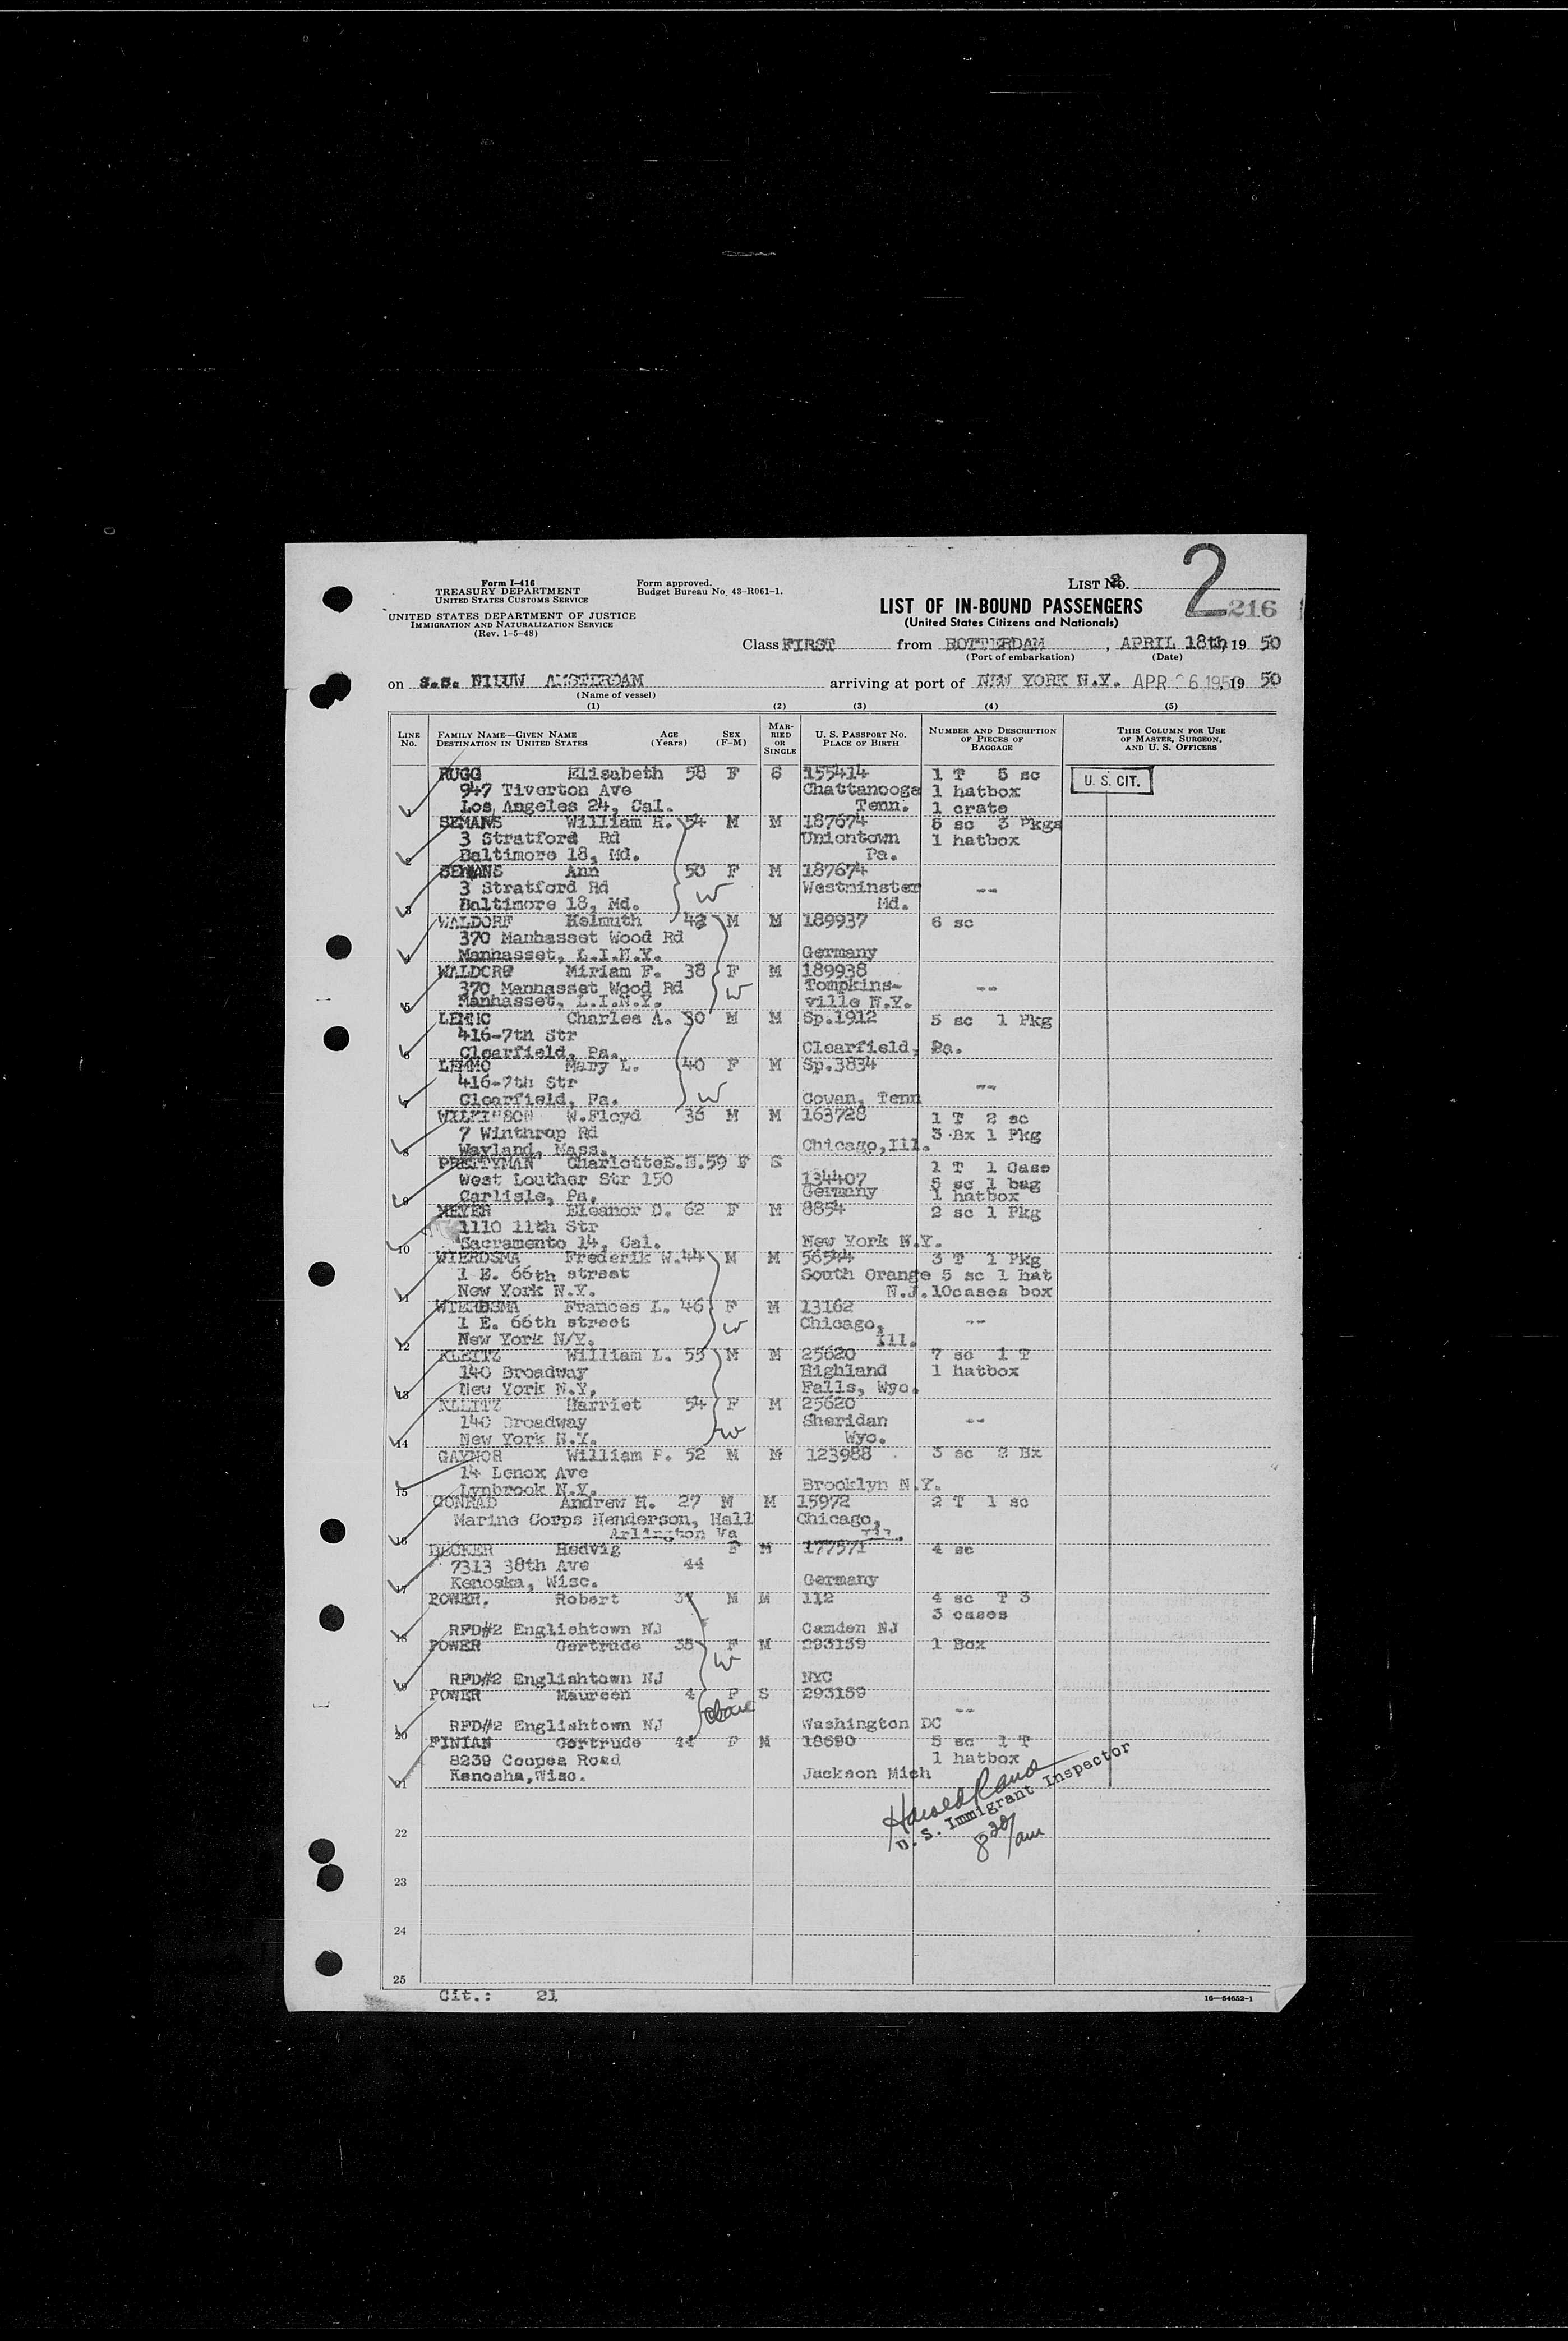 Form I-416
TREASURY DEPARTMENT
UNITED STATES CUSTOMS SERVICE
UNITED STATES DEPARTMENT OF JUSTICE
IMMIGRATION AND NATURALIZATION SERVICE
(Rev. 1-5-48)
Form approved.
Budget Bureau No. 43-R061-1.
LIST No. 2
2
216
LIST OF IN-BOUND PASSENGERS
(United States Citizens and Nationals)
Class FIRST from ROTTERDAM, APRIL 18th, 19 50
(Port of embarkation) (Date)
on s.s. NIEUW AMSTERDAM arriving at port of NEW YORK N.Y. APR 26 195 19 50
(Name of vessel)
(1) (2) (3) (4) (5)
LINE No. FAMILY NAME—GIVEN NAME DESTINATION IN UNITED STATES AGE (Years) SEX (F-M) MARRIED OR SINGLE U. S. PASSPORT No. PLACE OF BIRTH NUMBER AND DESCRIPTION OF PIECES OF BAGGAGE THIS COLUMN FOR USE OF MASTER, SURGEON, AND U. S. OFFICERS
RUGG Elisabeth 58 F S 155414 1 T 5 sc U. S. CIT.
947 Tiverton Ave Chattanooga 1 hatbox
1 Los Angeles 24, Cal. Tenn. 1 crate
SEMANS William H. 54 M M 187674 5 sc 3 Pkgs
3 Stratford Rd Uniontown 1 hatbox
2 Baltimore 18, Md. Pa.
SEMANS Ann 50 F M 187674
3 Stratford Rd W Westminster --
3 Baltimore 18, Md. Md.
WALDORF Helmuth 43 M M 189937 6 sc
370 Manhasset Wood Rd
4 Manhasset, L.I.N.Y. Germany
WALDORF Miriam F. 38 F M 189938
370 Manhasset Wood Rd W Tompkins- --
5 Manhasset, L.I.N.Y. ville N.Y.
LEMMO Charles A. 30 M M Sp.1912 5 sc 1 Pkg
416-7th Str
6 Clearfield, Pa. Clearfield, Pa.
LEMMO Mary L. 40 F M Sp.3834
416-7th Str --
7 Clearfield, Pa. W Cowan, Tenn
WILKINSON W.Floyd 36 M M 163728 1 T 2 sc
7 Winthrop Rd 3 Bx 1 Pkg
8 Wayland, Mass. Chicago,Ill.
PRETTYMAN CharlotteE.E.59 F S 1 T 1 Case
West Louther Str 150 134407 5 sc 1 bag
9 Carlisle, Pa. Germany 1 hatbox
MEYER Eleanor D. 62 F M 8854 2 sc 1 Pkg
1110 11th Str
10 Sacramento 14, Cal. New York N.Y.
WIERDSMA Frederik W.44 M M 56544 3 T 1 Pkg
1 E. 66th street South Orange 5 sc 1 hat
11 New York N.Y. N.J.10cases box
WIERDSMA Frances L. 46 F M 13162
1 E. 66th street W Chicago, --
12 New York N/Y. Ill.
KLEITZ William L. 55 M M 25620 7 sc 1 T
140 Broadway Highland 1 hatbox
13 New York N.Y. Falls, Wyo.
KLEITZ Harriet 54 F M 25620
140 Broadway Sheridan --
14 New York N.Y. W Wyo.
GAYNOR William P. 52 M M 123988 3 sc 2 Bx
14 Lenox Ave
15 Lynbrook N.Y. Brooklyn N.Y.
CONRAD Andrew H. 27 M M 15972 2 T 1 sc
Marine Corps Henderson, Hall Chicago,
16 Arlington Va Ill.
BECKER Hedvig F M 177571 4 sc
7313 38th Ave 44
17 Kenoska, Wisc. Germany
POWER. Robert M M 112 4 sc T 3
3 cases
18 RFD#2 Englishtown NJ Camden NJ
POWER Gertrude 35 F M 293159 1 Box
W
19 RFD#2 Englishtown NJ NYC
POWER Maureen 4 F S 293159
above --
20 RFD#2 Englishtown NJ Washington DC
FINIAN Gertrude 44 F M 18690 5 sc 1 T
8239 Coopes Road 1 hatbox
21 Kenosha,Wisc. Jackson Mich
Harold Rand
U. S. Immigrant Inspector
820/am
22
23
24
25
Cit.: 21
16—54652-1